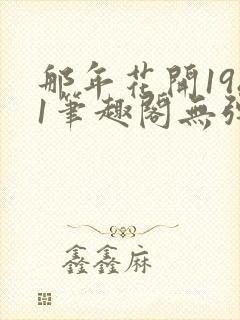 那年花開19
1筆趣閣無
鑫鑫麻